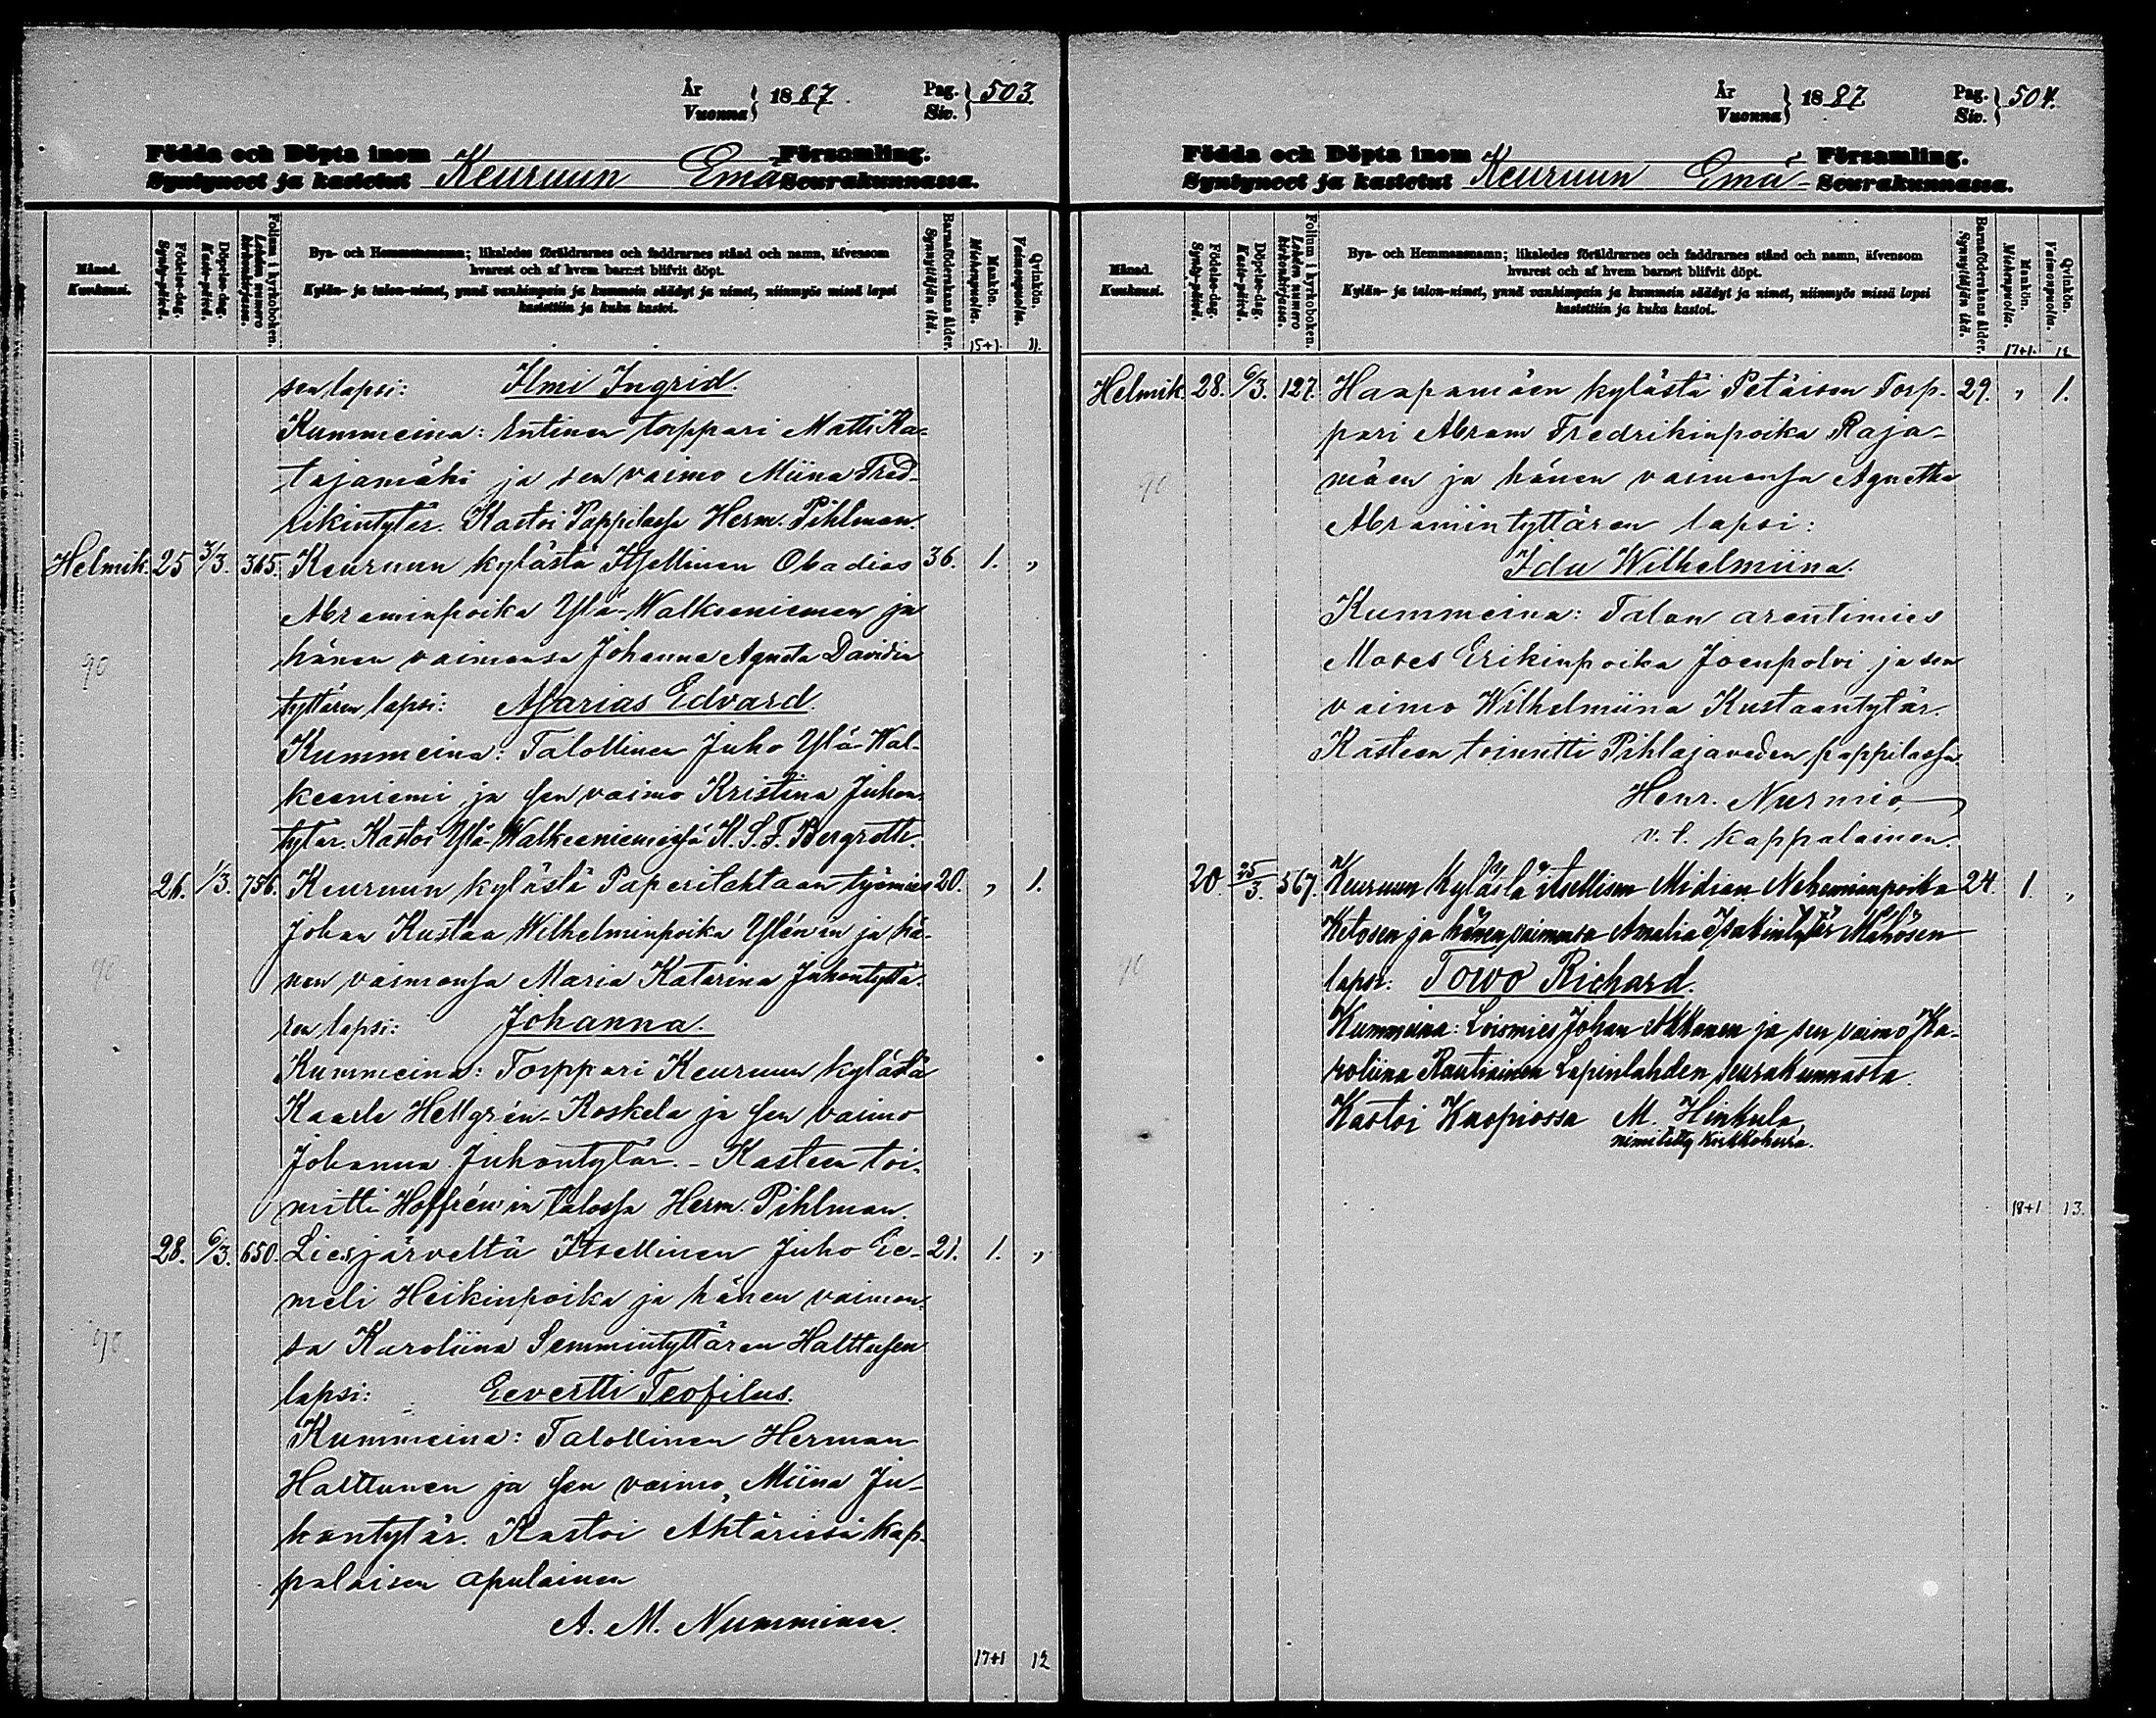 År Vuonna } 1887. Pag. Siv. } 503.
Födda och Döpta inom Församling.
Syntyneet ja kastetut Keuruun Emä Seurakunnassa.
Månad. Kuukausi.
Födelse-dag. Synty-päivä.
Döpelse-dag. Kaste-päivä.
Folium i kyrkoboken. Lehden numero kirkonkirjassa.
Bya- och Hemmansnamn; likaledes föräldrarnes och faddrarnes stånd och namn, äfvensom
hvarest och af hvem barnet blifvit döpt.
Kylän- ja talon-nimet, ynnä vanhimpain ja kummein säädyt ja nimet, niinmyös missä lapsi
kastettiin ja kuka kastoi.
Barnaföderskans ålder. Synnyttäjän ikä.
Mankön. Miehenpuolia.
Qvinkön. Vaimonpuolia.
15+1. 11.
sen lapsi: Ilmi Ingrid.
Kummeina: Entinen torppari Matti Ka-
tajamäki ja sen vaimo Miina Fred-
rikintytär. Kastoi Pappilassa Herm. Pihlman.
Helmik. 25 3/3. 365. Keuruun kylästä Itsellinen Obadias 36. 1. „
Abraminpoika Ylä-Walkeeniemen ja
hänen vaimonsa Johanna Agneta Davidin
tyttären lapsi: Asarias Edvard.
Kummeina: Talollinen Juho Ylä-Wal-
keeniemi ja sen vaimo Kristina Juhon-
tytär. Kastoi Ylä-Walkeeniemessä K. S. F. Bergroth.
26. 1/3. 756. Keuruun kylästä Paperitehtaan työmies 20. „ 1.
Johan Kustaa Wilhelminpoika Ylén'in ja hä-
nen vaimonsa Maria Katarina Juhontyttä-
ren lapsi: Johanna.
Kummeina: Torppari Keuruun kylästä
Kaarle Hellgrén-Koskela ja sen vaimo
Johanna Juhontytär. - Kasteen toi-
mitti Hoffrén'in talossa Herm. Pihlman.
28. 6/3. 650. Liesjärveltä Itsellinen Juho Ee- 21. 1. „
meli Heikinpoika ja hänen vaimon-
sa Karoliina Semmintyttären Halttusen
lapsi: Eevertti Teofilus.
Kummeina: Talollinen Herman
Halttunen ja sen vaimo, Miina Ju-
hontytär. Kastoi Ahtärissä kap-
palaisen apulainen
A. M. Numminen.
17+1 12
År Vuonna } 1887 Pag. Siv. } 504.
Födda och Döpta inom Församling.
Syntyneet ja kastetut Keuruun Emä- Seurakunnassa.
Månad. Kuukausi.
Födelse-dag. Synty-päivä.
Döpelse-dag. Kaste-päivä.
Folium i kyrkoboken. Lehden numero kirkonkirjassa.
Bya- och Hemmansnamn; likaledes föräldrarnes och faddrarnes stånd och namn, äfvensom
hvarest och af hvem barnet blifvit döpt.
Kylän- ja talon-nimet, ynnä vanhimpain ja kummein säädyt ja nimet, niinmyös missä lapsi
kastettiin ja kuka kastoi.
Barnaföderskans ålder. Synnyttäjän ikä.
Mankön. Miehenpuolia.
Qvinkön. Vaimonpuolia.
17+1. 12
Helmik. 28. 6/3. 127. Haapamäen kylästä Petäisen Torp- 29. „ 1.
pari Abram Fredrikinpoika Raja-
mäen ja hänen vaimonsa Agnetha
Abramintyttären lapsi:
Ida Wilhelmiina.
Kummeina: Talon arentimies
Moses Erikinpoika Joenpolvi ja sen
vaimo Wilhelmiina Kustaantytär.
Kasteen toimitti Pihlajaveden pappilassa
Henr. Nurmio,
v. t. kappalainen.
20. 25/3. 567. Keuruun kylästä itsellisen Midian Nehemianpoika 24. 1. „
Ketosen ja hänen vaimonsa Amalia Isakintytär Mähösen
lapsi: Toivo Richard.
Kummeina: Loismies Johan Akkanen ja sen vaimo Ka-
roliina Rautiainen Lapinlahden seurakunnasta.
Kastoi Kuopiossa M. Hinkula,
nimitetty kirkkoherra.
18+1 13.